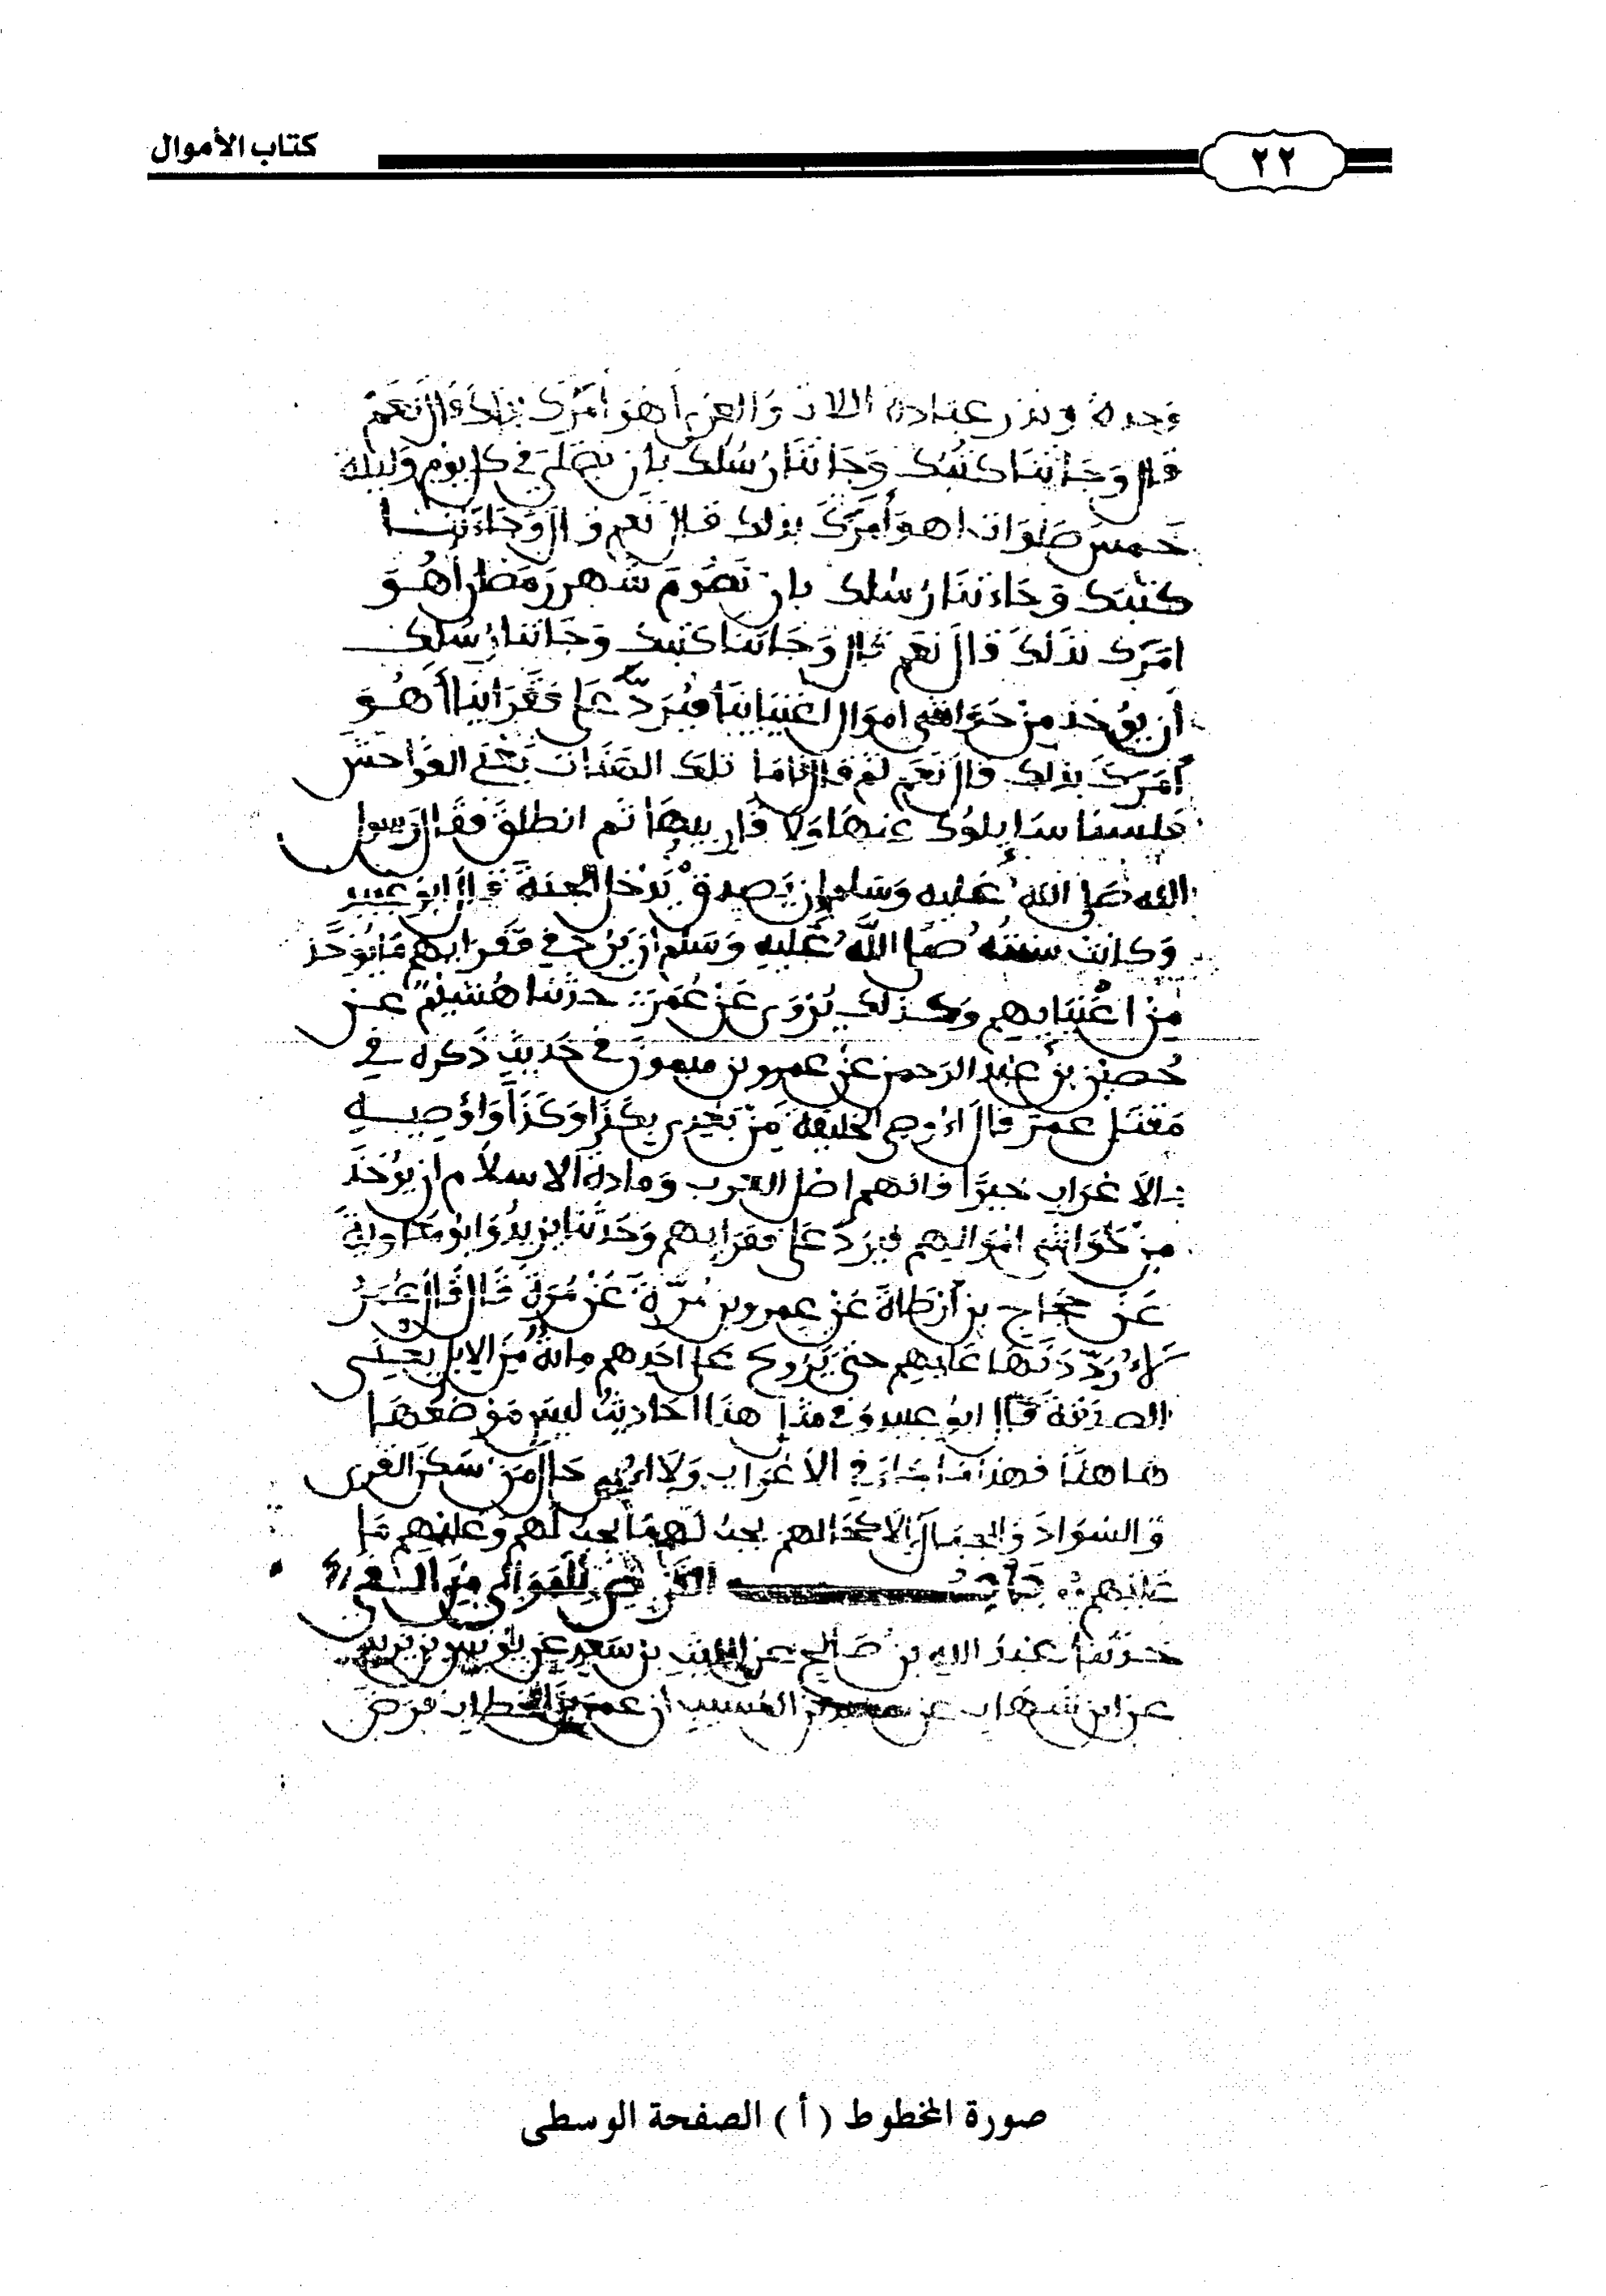 كتاب الأموال
٢٢
وحده ونذر عبادة اللات والعزى أهو أمرك بذلك قال نعم
قال وجاتنا كتبك وجاتنا رسلك بان نصلي في كل يوم وليلة
خمس صلوات اهو أمرك بذلك قال نعم قال وجاءتنا
كتبك وجاءتنا رسلك بان نصوم شهر رمضان أهو
امرك بذلك قال نعم قال وجاتنا كتبك وجاتنا رسلك
أن يؤخذ من حواشي اموال اغنيائنا فيرد على فقرائنا أهو
أمرك بذلك قال نعم ثم قال فاما تلك الهنات يعني الفواحش
فلسنا سايلوك عنها ولا قاربيها ثم انطلق فقال رسول
الله صلى الله عليه وسلم إن يصدق يدخل الجنة قال ابو عبيد
وكانت سنته صلى الله عليه وسلم ان يرد في فقرايهم ما يؤخذ
من اغنيايهم وكذلك يروى عن عمر حدثنا هشيم عن
حصين بن عبد الرحمن عن عمرو بن ميمون في حديث ذكره في
مقتل عمر قال أوصي الخليفة من بعدي بكذا وكذا وأوصيه
بالاعراب خيرا فانهم اصل العرب ومادة الاسلام ان يؤخذ
من حواشي اموالهم فيرد على فقرايهم وحدثنا يزيد وابو معاوية
عن حجاج بن أرطاة عن عمرو بن مرة عن مرة قال قال عمر
لأرددنها عليهم حتى يروح على احدهم ماية من الابل يعني
الصدقة قال ابو عبيد وفي مثل هذا احاديث ليس موضعها
هاهنا فهذا ما جاء في الاعراب ولا حال من سكن القرى
والسواد والجبال الا كحالهم يجب لهم ما يجب لهم وعليهم ما
عليهم باب الفرض للموالي من الفيء
حدثنا عبد الله بن صالح عن الليث بن سعد عن يونس بن يزيد
عن ابن شهاب عن بن المسيب ان عمر بن الخطاب فرض
صورة المخطوط (أ) الصفحة الوسطى